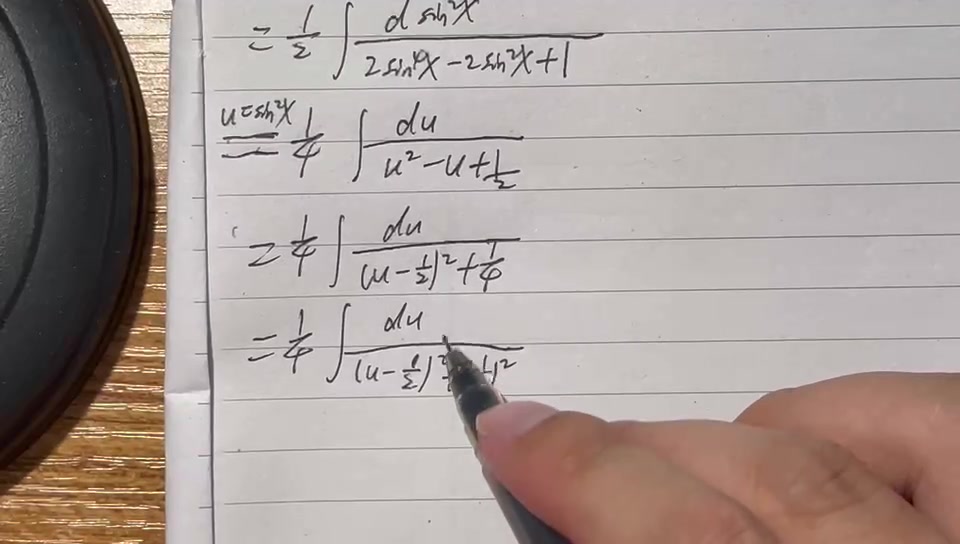 = 1/2 ∫ d sin²x / (2sin⁴x - 2sin²x + 1)
u=sin²x = 1/4 ∫ du / (u² - u + 1/2)
= 1/4 ∫ du / ((u - 1/2)² + 1/4)
= 1/4 ∫ du / ((u - 1/2)² )²